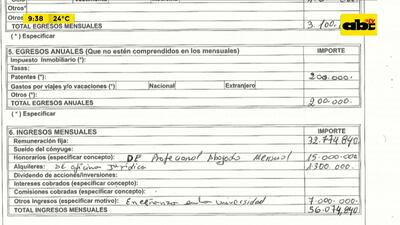 9:38 24°C
abc tv
Otros*
TOTAL EGRESOS MENSUALES 3.100.
(*) Especificar
5. EGRESOS ANUALES (Que no estén comprendidos en los mensuales) IMPORTE
Impuesto Inmobiliario (*):
Tasas:
Patentes (*): 200.000.-
Gastos por viajes y/o vacaciones (*) Nacional Extranjero
Otros (*):
TOTAL EGRESOS ANUALES 200.000.-
(*) Especificar
6. INGRESOS MENSUALES IMPORTE
Remuneración fija: 32.774.840.-
Sueldo del cónyuge:
Honorarios (especificar concepto): DE Profesional Abogado Mensual 15.000.000
Alquileres: DE oficina Jurídica 1.300.000
Dividendo de acciones/inversiones:
Intereses cobrados (especificar):
Comisiones cobradas (especificar):
Otros ingresos (especificar motivo): Enseñanza en la universidad 7.000.000
TOTAL INGRESOS MENSUALES 56.074.840